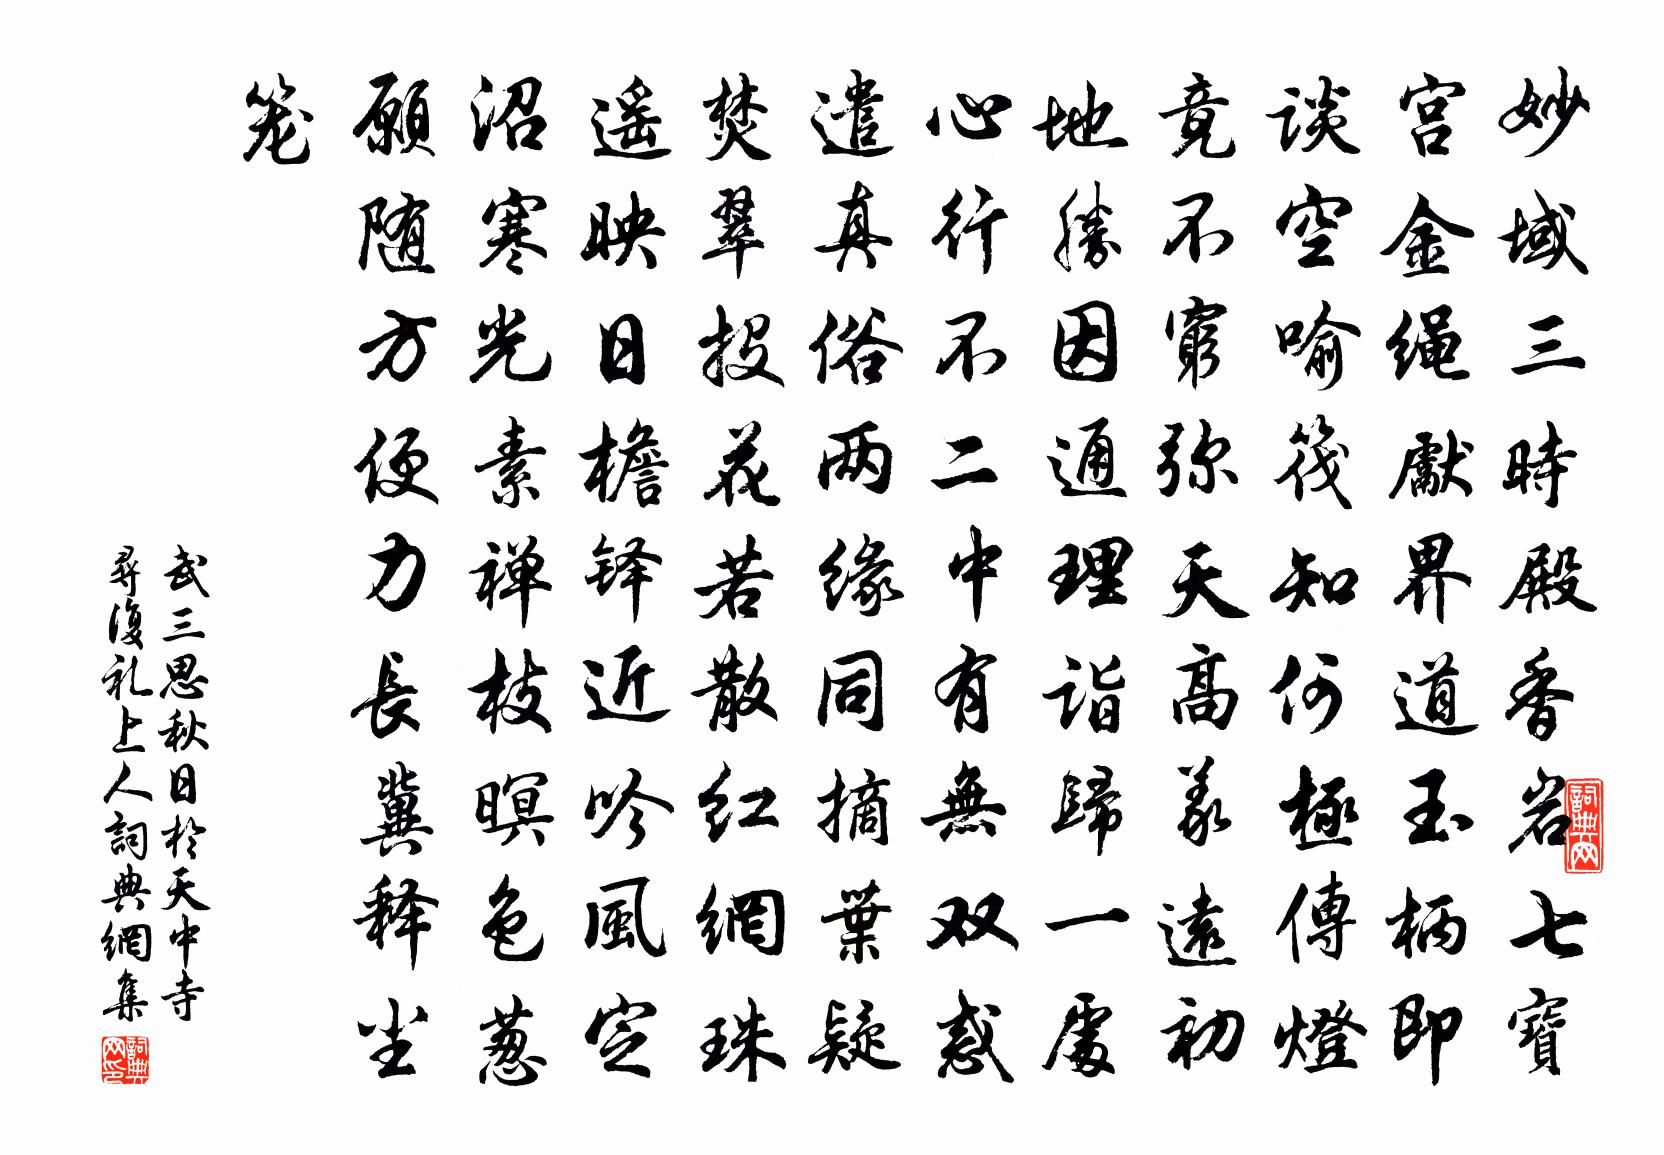 妙域三時殿香岩七寶
宫金绳獻界道玉柄即
谈空喻筏知何極傳燈
竟不窮弥天高義遠初
地勝因通理诣歸一處
心行不二中有無双惑
遣真俗两缘同摘葉疑
焚翠投花若散红網珠
遥映日檐铎近吟風定
沼寒光素禅枝暝色葱
願随方便力長冀释尘
笼
武三思秋日於天中寺
尋復礼上人詞典網集
詞典网
詞典网印